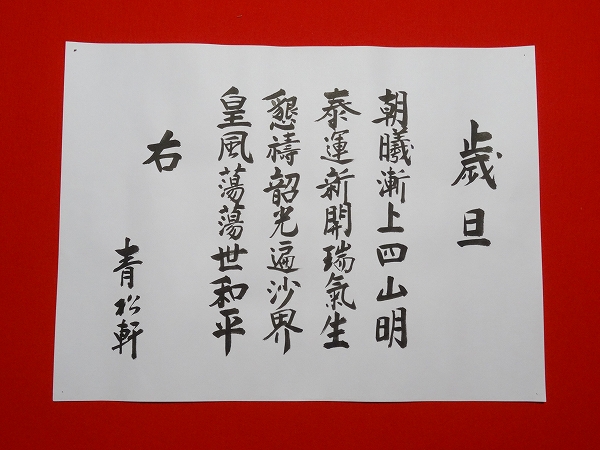 歳旦
朝曦漸上四山明
泰運新開瑞氣生
懇禱韶光遍沙界
皇風蕩蕩世和平
右
青松軒